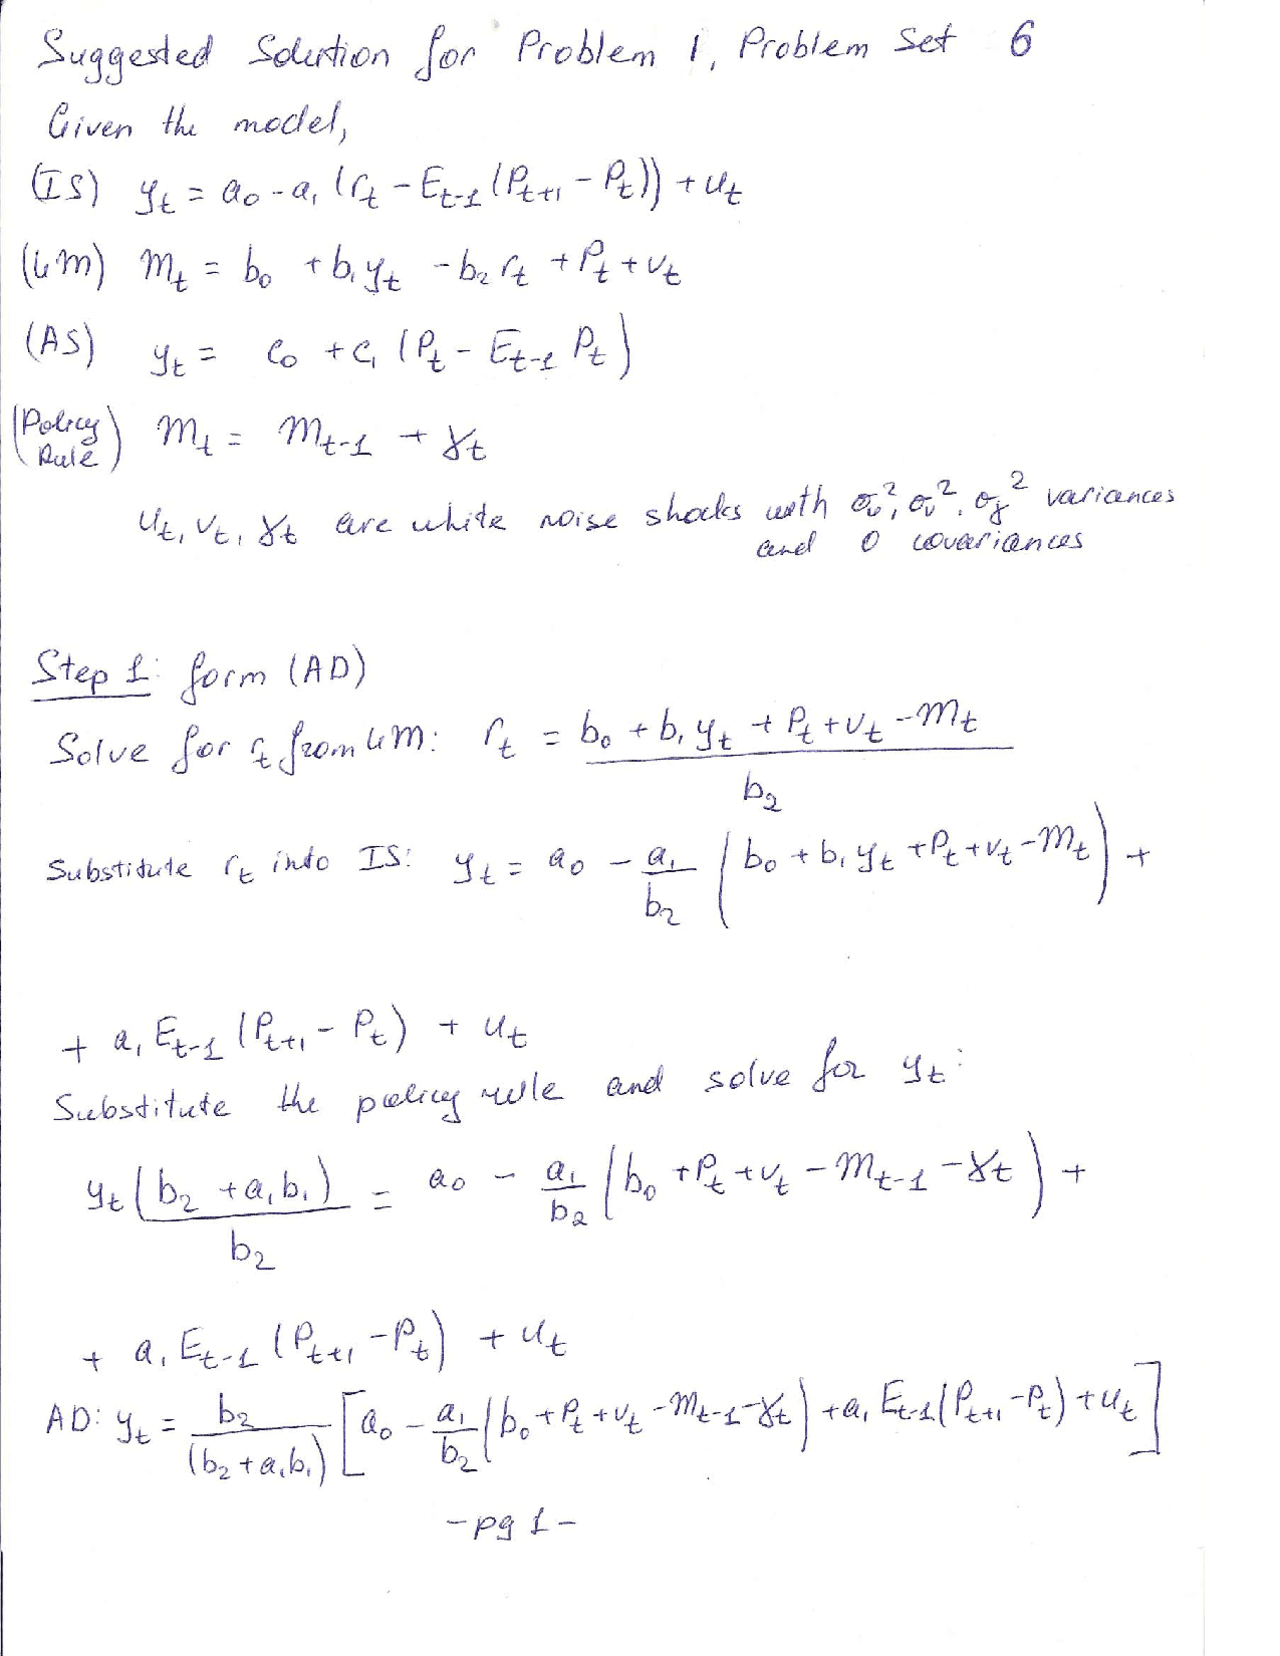 Suggested Solution for Problem 1, Problem Set 6
Given the model,
(IS) y_t = a_0 - a_1 (r_t - E_{t-1} (P_{t+1} - P_t)) + u_t
(LM) m_t = b_0 + b_1 y_t - b_2 r_t + P_t + v_t
(AS) y_t = c_0 + c_1 (P_t - E_{t-1} P_t)
(Policy Rule) m_t = m_{t-1} + γ_t
u_t, v_t, γ_t are white noise shocks with σ_u^2, σ_v^2, σ_γ^2 variances
and 0 covariances
Step 1: form (AD)
Solve for r_t from LM: r_t = (b_0 + b_1 y_t + P_t + v_t - m_t) / b_2
Substitute r_t into IS: y_t = a_0 - a_1/b_2 (b_0 + b_1 y_t + P_t + v_t - m_t) +
+ a_1 E_{t-1} (P_{t+1} - P_t) + u_t
Substitute the policy rule and solve for y_t:
y_t (b_2 + a_1 b_1) / b_2 = a_0 - a_1/b_2 (b_0 + P_t + v_t - m_{t-1} - γ_t) +
+ a_1 E_{t-1} (P_{t+1} - P_t) + u_t
AD: y_t = b_2/(b_2 + a_1 b_1) [a_0 - a_1/b_2 (b_0 + P_t + v_t - m_{t-1} - γ_t) + a_1 E_{t-1} (P_{t+1} - P_t) + u_t]
- pg 1 -